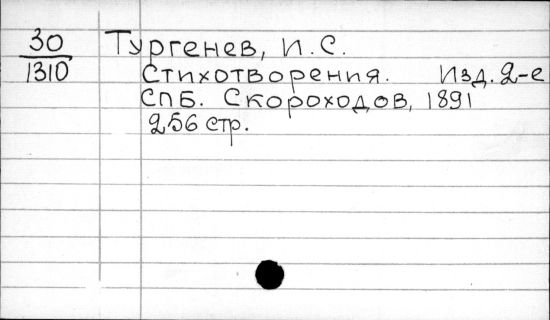 30 Тургенев, И.С.
1310 Стихотворения. Изд. 2-е
СПБ. Скороходов, 1891
256 стр.